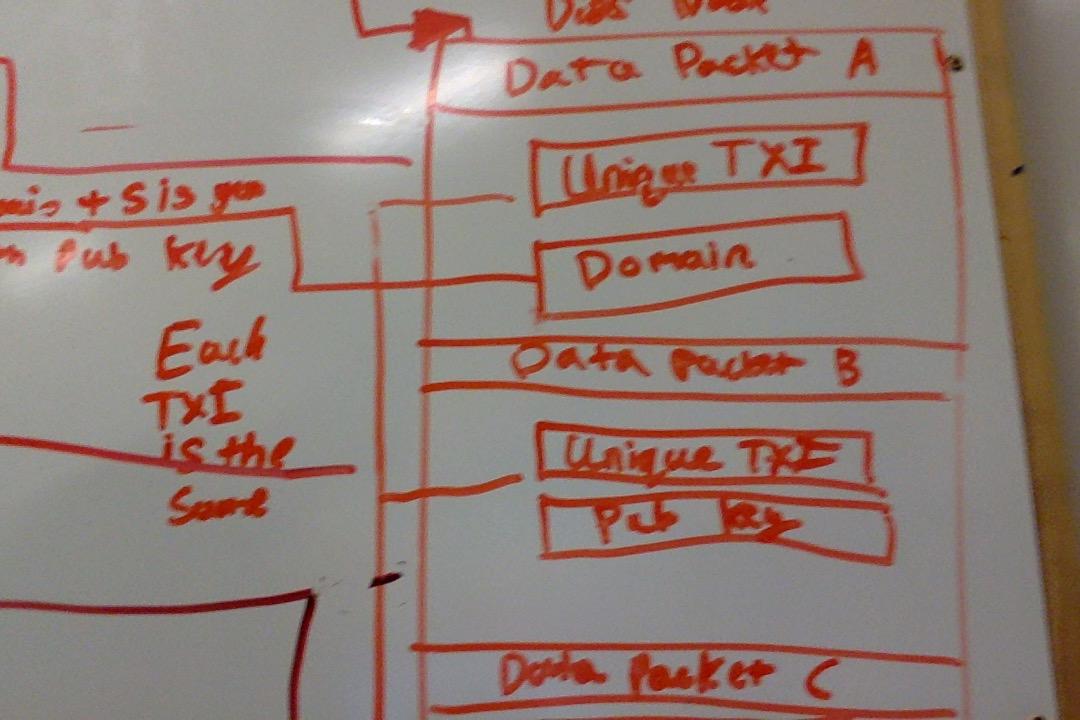 Data Packet A
Unique TXI
Domain
+ S is gen
Pub Key
Each
TXI
is the
same
Data Packet B
Unique TXI
Pub key
Data Packet C